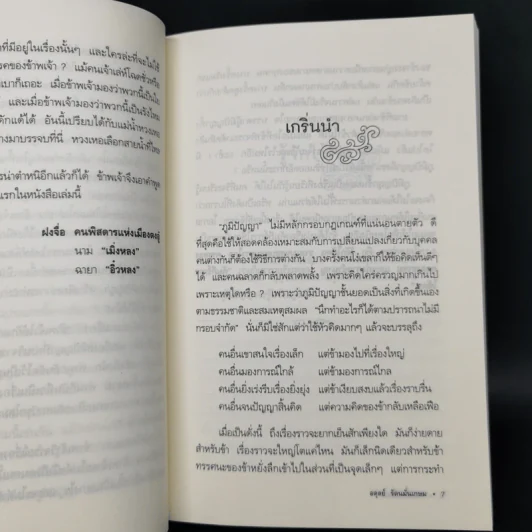 ที่มีอยู่ในเรื่องนั้นๆ และใครล่ะที่จะไม่ใช้
ของข้าพเจ้า ? แม้คนเจ้าเล่ห์ที่โฉดชั่วหรือ
เบาก็เถอะ เมื่อข้าพเจ้ามองว่าพวกนี้เป็น
และเมื่อข้าพเจ้ามองว่าพวกนี้เป็นรังไหม
ดักแด้ได้ อันนี้เปรียบได้กับแม่น้ำหวงเหอ
มาบรรจบที่นี่ หวงเหอเลือกสายน้ำที่ไหล
น่าตำหนิอีกแล้วก็ได้ ข้าพเจ้าจึงเอาคำพูด
แรกในหนังสือเล่มนี้
ฝงจื่อ คนพิสดารแห่งเมืองตงอู่
นาม "เมิ่งหลง"
ฉายา "อิ๋วหลง"
เกริ่นนำ
"ภูมิปัญญา" ไม่มีหลักกรอบกฎเกณฑ์ที่แน่นอนตายตัว ดี
ที่สุดคือใช้ให้สอดคล้องเหมาะสมกับการเปลี่ยนแปลงเกี่ยวกับบุคคล
คนต่างกันก็ต้องใช้วิธีการต่างกัน บางครั้งคนโง่เขลาก็ให้ข้อคิดเห็นดีๆ
ได้ และคนฉลาดก็กลับพลาดพลั้ง เพราะคิดใคร่ครวญมากเกินไป
เพราะเหตุใดหรือ ? เพราะว่าภูมิปัญญาชั้นยอดเป็นสิ่งที่เกิดขึ้นเอง
ตามธรรมชาติและสมเหตุสมผล "นึกทำอะไรก็ได้ตามปรารถนาไม่มี
กรอบจำกัด" นั่นก็มิใช่สักแต่ว่าใช้หัวคิดมากๆ แล้วจะบรรลุถึง
คนอื่นเขาสนใจเรื่องเล็ก แต่ข้ามองไปที่เรื่องใหญ่
คนอื่นมองการณ์ใกล้ แต่ข้ามองการณ์ไกล
คนอื่นยิ่งเร่งรีบเรื่องยิ่งยุ่ง แต่ข้าเงียบสงบแล้วเรื่องราบรื่น
คนอื่นจนปัญญาสิ้นคิด แต่ความคิดของข้ากลับเหลือเฟือ
เมื่อเป็นดั่งนี้ ถึงเรื่องราวจะยากเย็นสักเพียงใด มันก็ง่ายดาย
สำหรับข้า เรื่องราวจะใหญ่โตแค่ไหน มันก็เล็กนิดเดียวสำหรับข้า
ทรรศนะของข้าหยั่งลึกเข้าไปในส่วนที่เป็นจุดเล็กๆ แต่การกระทำ
อดุลย์ รัตนมั่นเกษม • 7